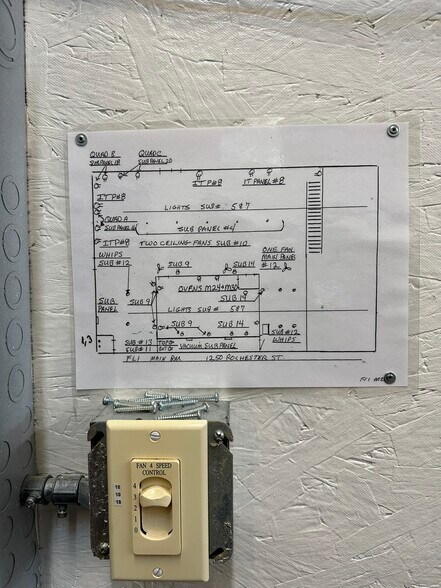 QUAD B QUAD C
SUBPANEL 18 SUBPANEL 20
IT P#8 IT PANEL #8
IT P#8
LIGHTS SUB# 5&7
QUAD A
SUB PANEL #4
IT P#8 TWO CEILING FANS SUB #10
WHIPS
SUB #12
ONE FAN
MAIN PANEL
#12
SUB 9 SUB 14
OVENS M24+M30
SUB
PANEL
SUB 9 SUB 14
LIGHTS SUB# 5&7
SUB 9 SUB 14
1,3
SUB #13 TOP
SUB #11 BOT
VACUUM SUB PANEL
SUB #12
WHIPS
FL1 MAIN RM 1250 ROCHESTER ST.
FAN 4 SPEED
CONTROL
4
3
2
1
0